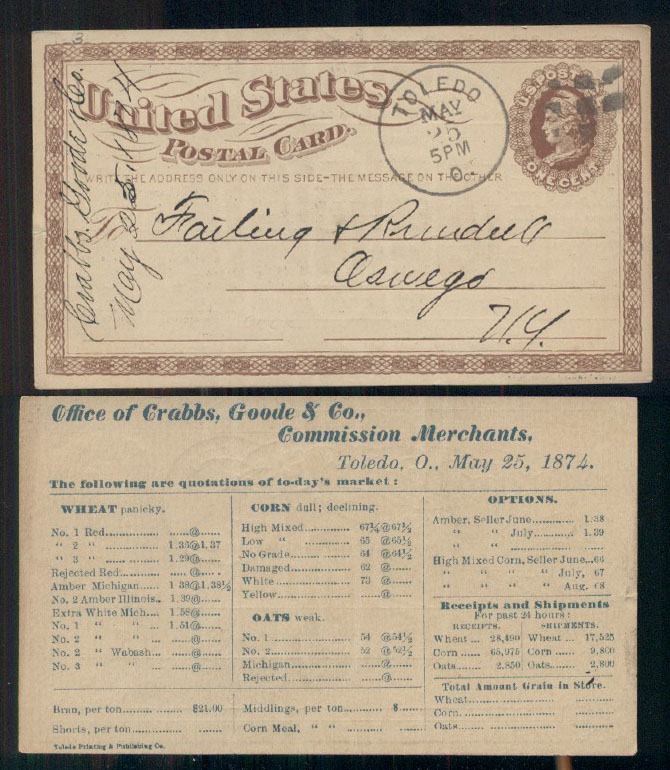 Crabbs, Goode & Co.
May 25 1874
United States
POSTAL CARD.
WRITE THE ADDRESS ONLY ON THIS SIDE–THE MESSAGE ON THE OTHER
To
Failing & Rundell
Oswego
N.Y.
TOLEDO
MAY
25
5PM
O.
U.S. POSTAGE
ONE CENT
Office of Crabbs, Goode & Co.,
Commission Merchants,
Toledo, O., May 25, 1874.
The following are quotations of to-day's market:
WHEAT panicky.
No. 1 Red............ ......@......
" 2 " ............ 1.36@1.37
" 3 " ............ 1.29@......
Rejected Red......... ......@......
Amber Michigan...... 1 38@1.38½
No. 2 Amber Illinois.. 1.39@......
Extra White Mich.... 1.58@......
No. 1 " " .... 1.51@......
No. 2 " " ... ......@......
No. 2 " Wabash... ......@......
No. 3 " " ... ......@......
Bran, per ton........ $21.00
Shorts, per ton......
CORN dull; declining.
High Mixed............ 67¼@67½
Low " ............ 65 @65½
No Grade............ 64 @64½
Damaged............ 62 @......
White ............ 73 @......
Yellow............ ......@......
OATS weak.
No. 1 .................. 54 @54½
No. 2.................. 52 @52½
Michigan............ ......@......
Rejected............ ......@......
Middlings, per ton........ $......
Corn Meal, " " ........
OPTIONS.
Amber, Seller June............ 1.38
" " July............ 1.39
" " ............
High Mixed Corn, Seller June...66
" " " " July, 67
" " " " Aug. 68
Receipts and Shipments
For past 24 hours:
RECEIPTS. SHIPMENTS.
Wheat ... 28,490 Wheat ... 17,525
Corn ...... 65,975 Corn ...... 9,800
Oats....... 2,850 Oats....... 2,800
Total Amount Grain in Store.
Wheat..............................
Corn..............................
Oats..............................
Toledo Printing & Publishing Co.